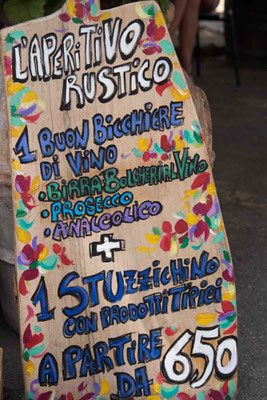 L'APERITIVO
RUSTICO
1 BUON BICCHIERE
DI VINO
• BIRRA • BOLLICINE AL VINO
• PROSECCO
• ANALCOLICO
+
1 STUZZICHINO
CON PRODOTTI TIPICI
A PARTIRE
DA 6,50